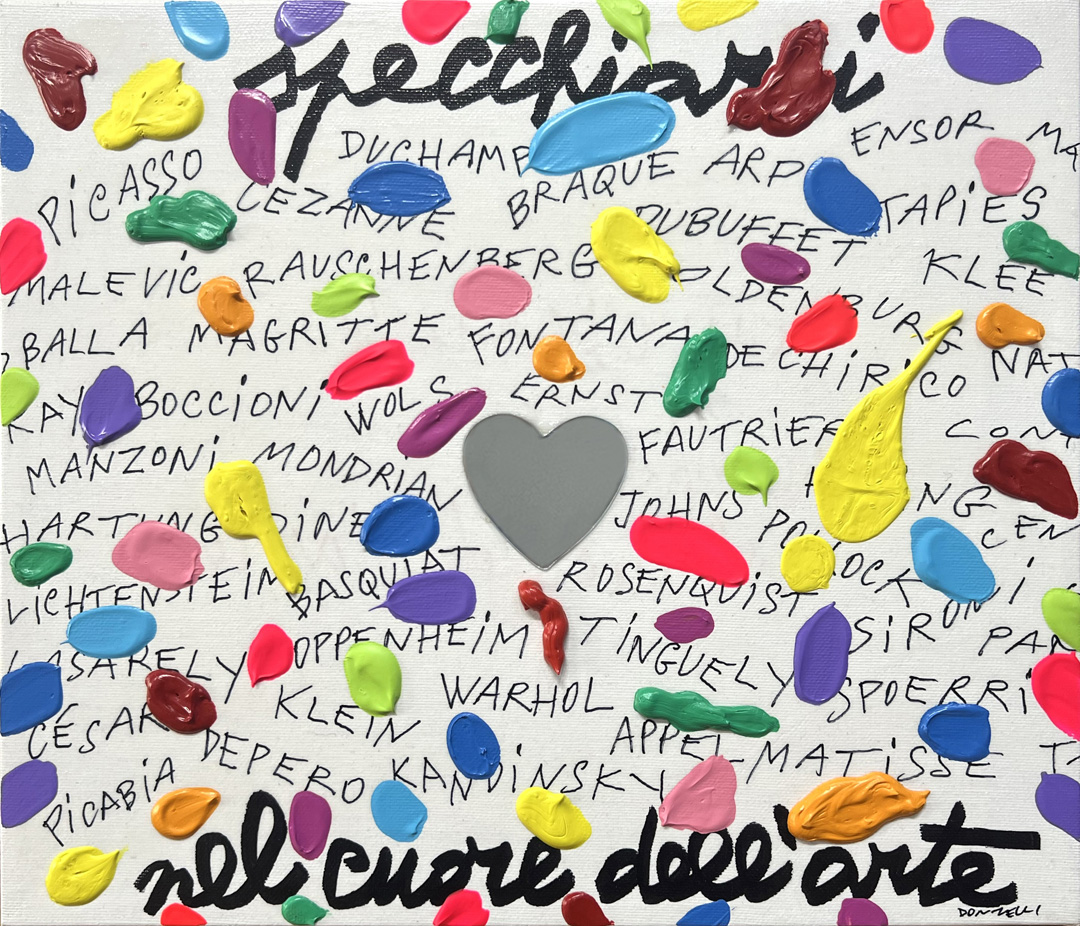 specchiarsi
ENSOR MA
DUCHAMP
PICASSO CEZANNE BRAQUE ARP TAPIES
DUBUFFET
MALEVIC RAUSCHENBERG OLDENBURG KLEE
BALLA MAGRITTE FONTANA DE CHIRICO NAT
RAY BOCCIONI WOLS ERNST
MANZONI MONDRIAN FAUTRIER CONT
HARTUNG DINE JOHNS POLLOCK CEN
LICHTENSTEIN BASQUIAT ROSENQUIST SIRONI
VASARELY OPPENHEIM TINGUELY PAN
CÉSAR KLEIN WARHOL SPOERRI
DEPERO APPEL MATISSE
PICABIA KANDINSKY
nel cuore dell'arte
DONZELLI